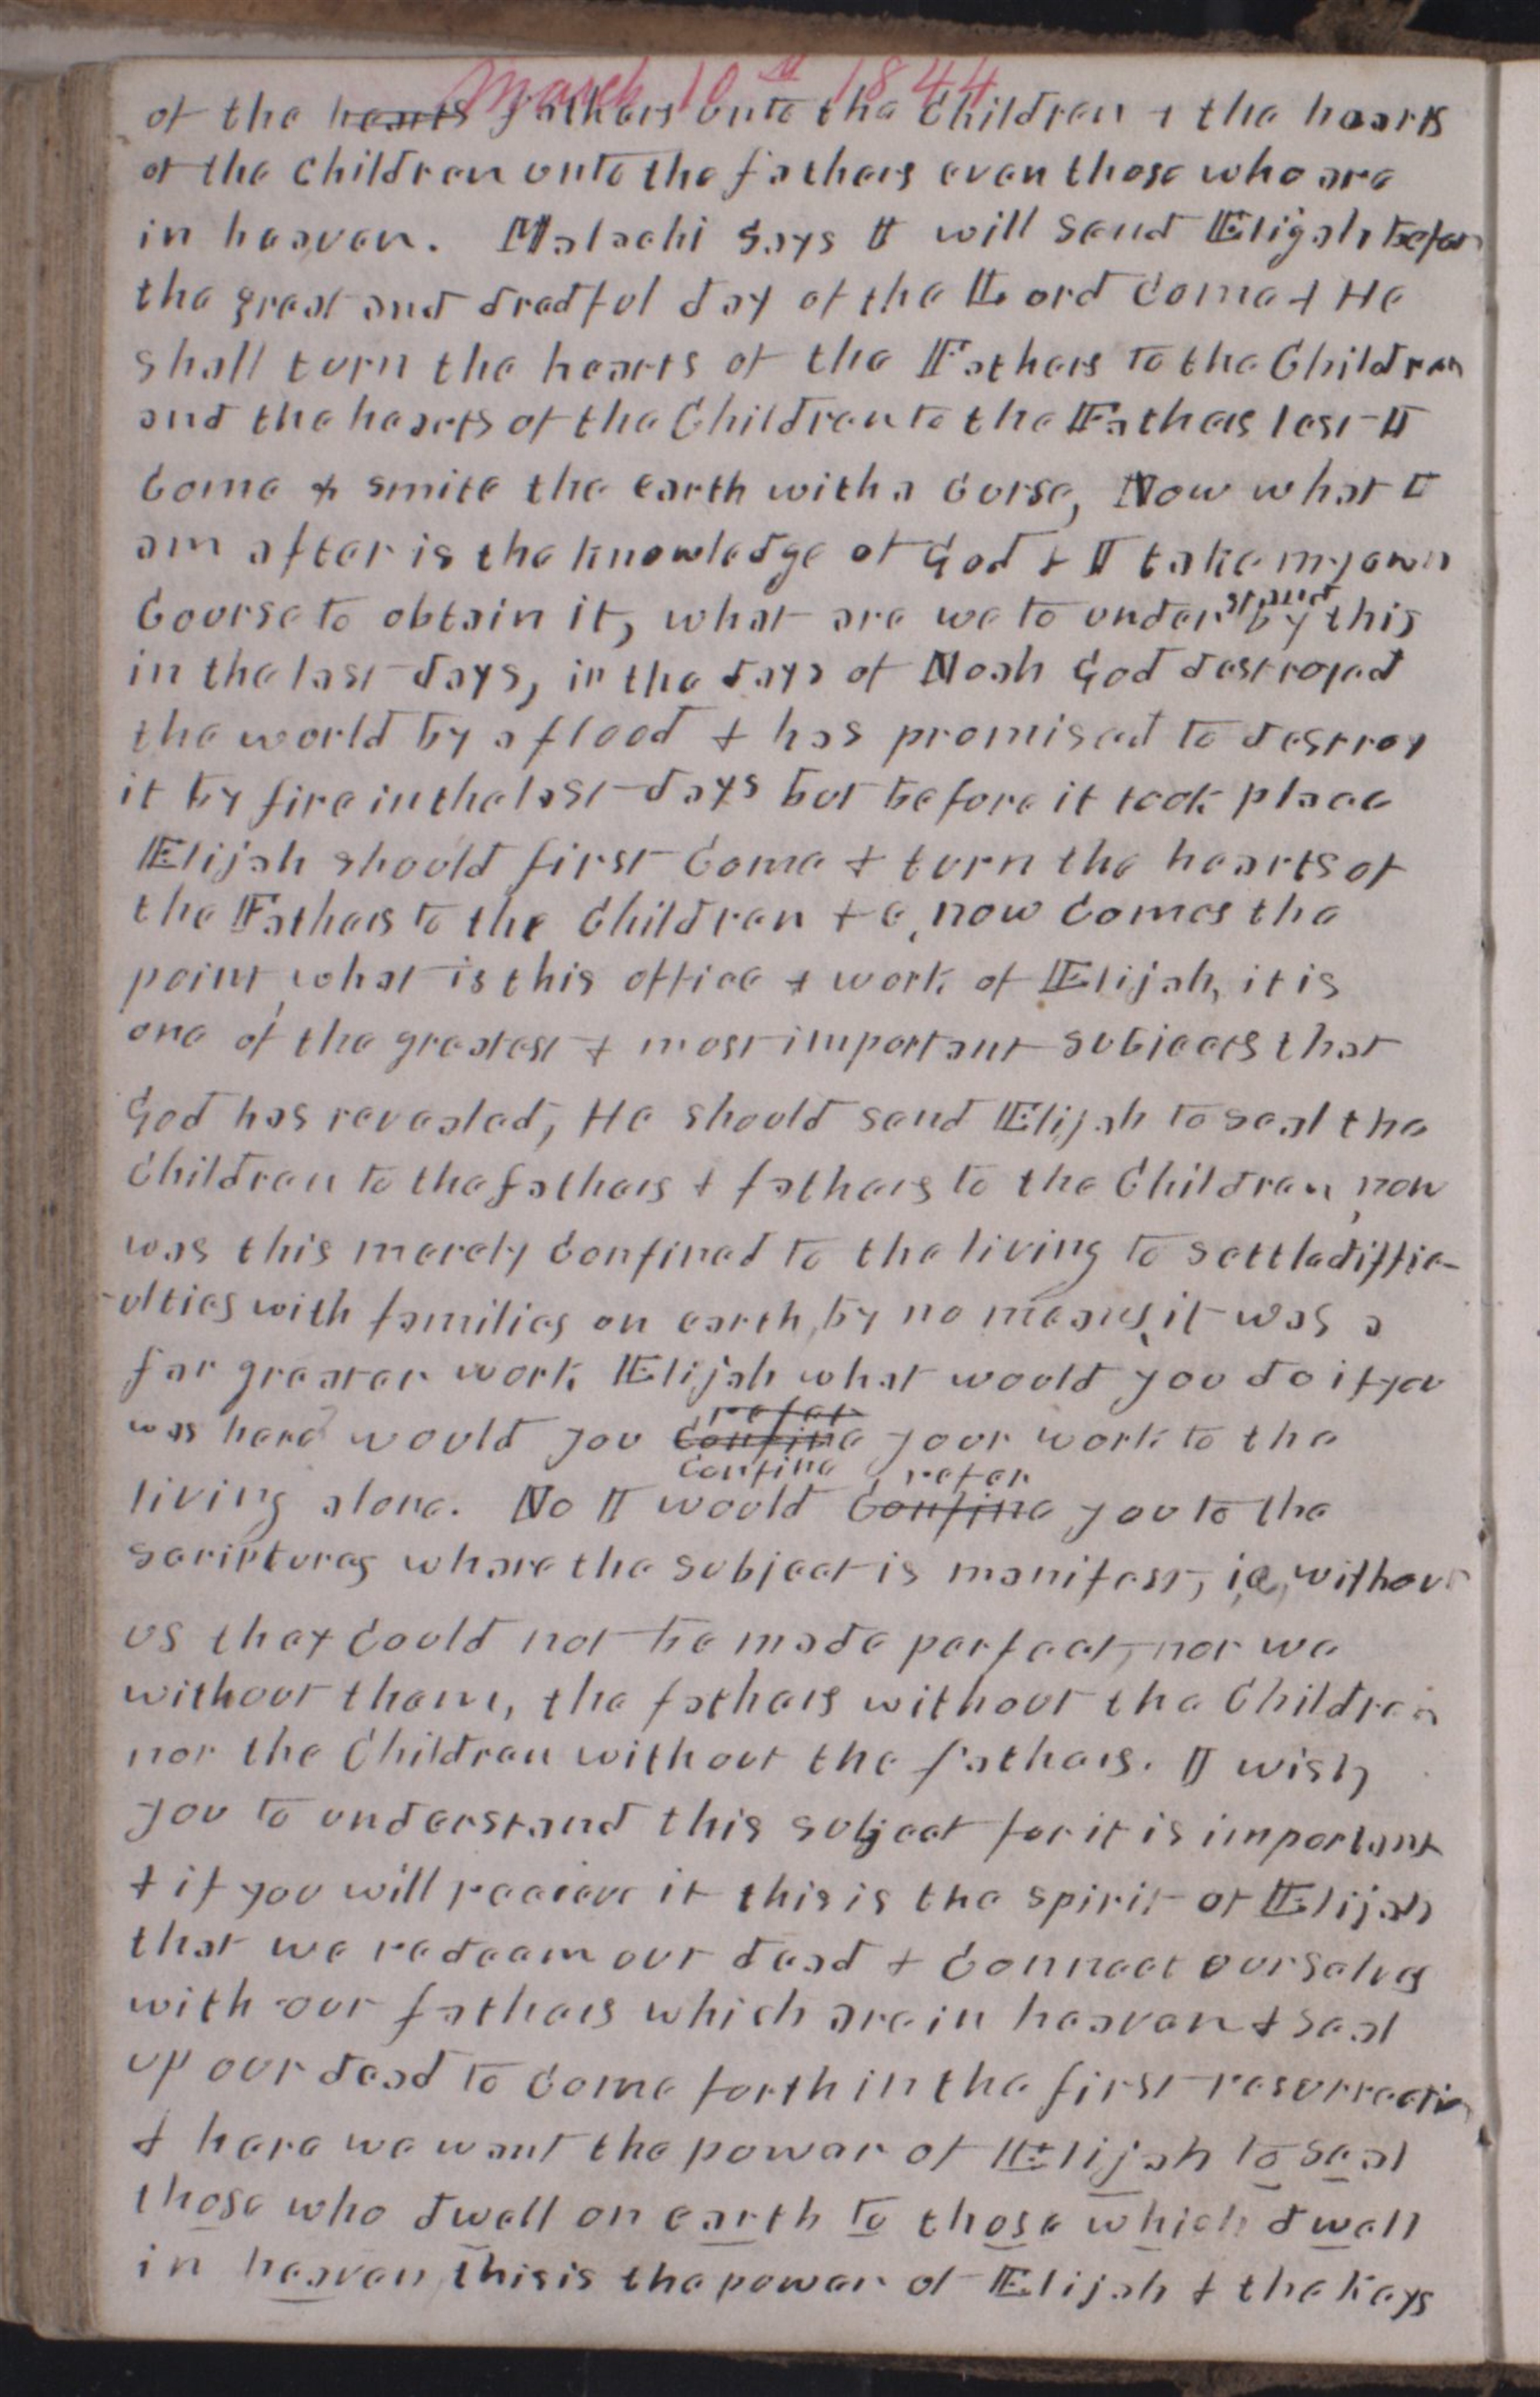 March 10th 1844
of the hearts fathers unto the Children & the hearts
of the Children unto the fathers even those who are
in heaven. Malachi says I will send Eligah before
the great and dredful day of the Lord Come & He
shall turn the hearts of the Fathers to the Children
and the hearts of the Children to the Fathers lest I
Come & smite the earth with a Curse, Now what I
am after is the knowledge of God & I take my own
Course to obtain it, what are we to understand by this
in the last days, in the days of Noah God destroyed
the world by a flood & has promised to destroy
it by fire in the last days but before it took place
Elijah should first Come & turn the hearts of
the Fathers to the Children &c, now Comes the
point, what is this office & work of Elijah, it is
one of the greatest & most important subjects that
God has revealed, He should send Elijah to seal the
Children to the fathers & fathers to the Children, now
was this merely Confined to the living to settle diffic-
-ulties with families on earth, by no means, it was a
far greater work. Elijah what would you do if you
was here? would you Confine refer Confine your work to the
living alone. No I would Confine refer you to the
scriptures where the subject is manifest, ie, without
us they Could not be made perfect, nor we
without them, the fathers without the Children
nor the Children without the fathers. I wish
you to understand this subject for it is important
& if you will receive it this is the spirit of Elijah
that we redeem our dead & Connect ourselves
with our fathers which are in heaven & seal
up our dead to Come forth in the first resurrection
& here we want the power of Elijah to seal
those who dwell on earth to those which dwell
in heaven this is the power of Elijah & the keys